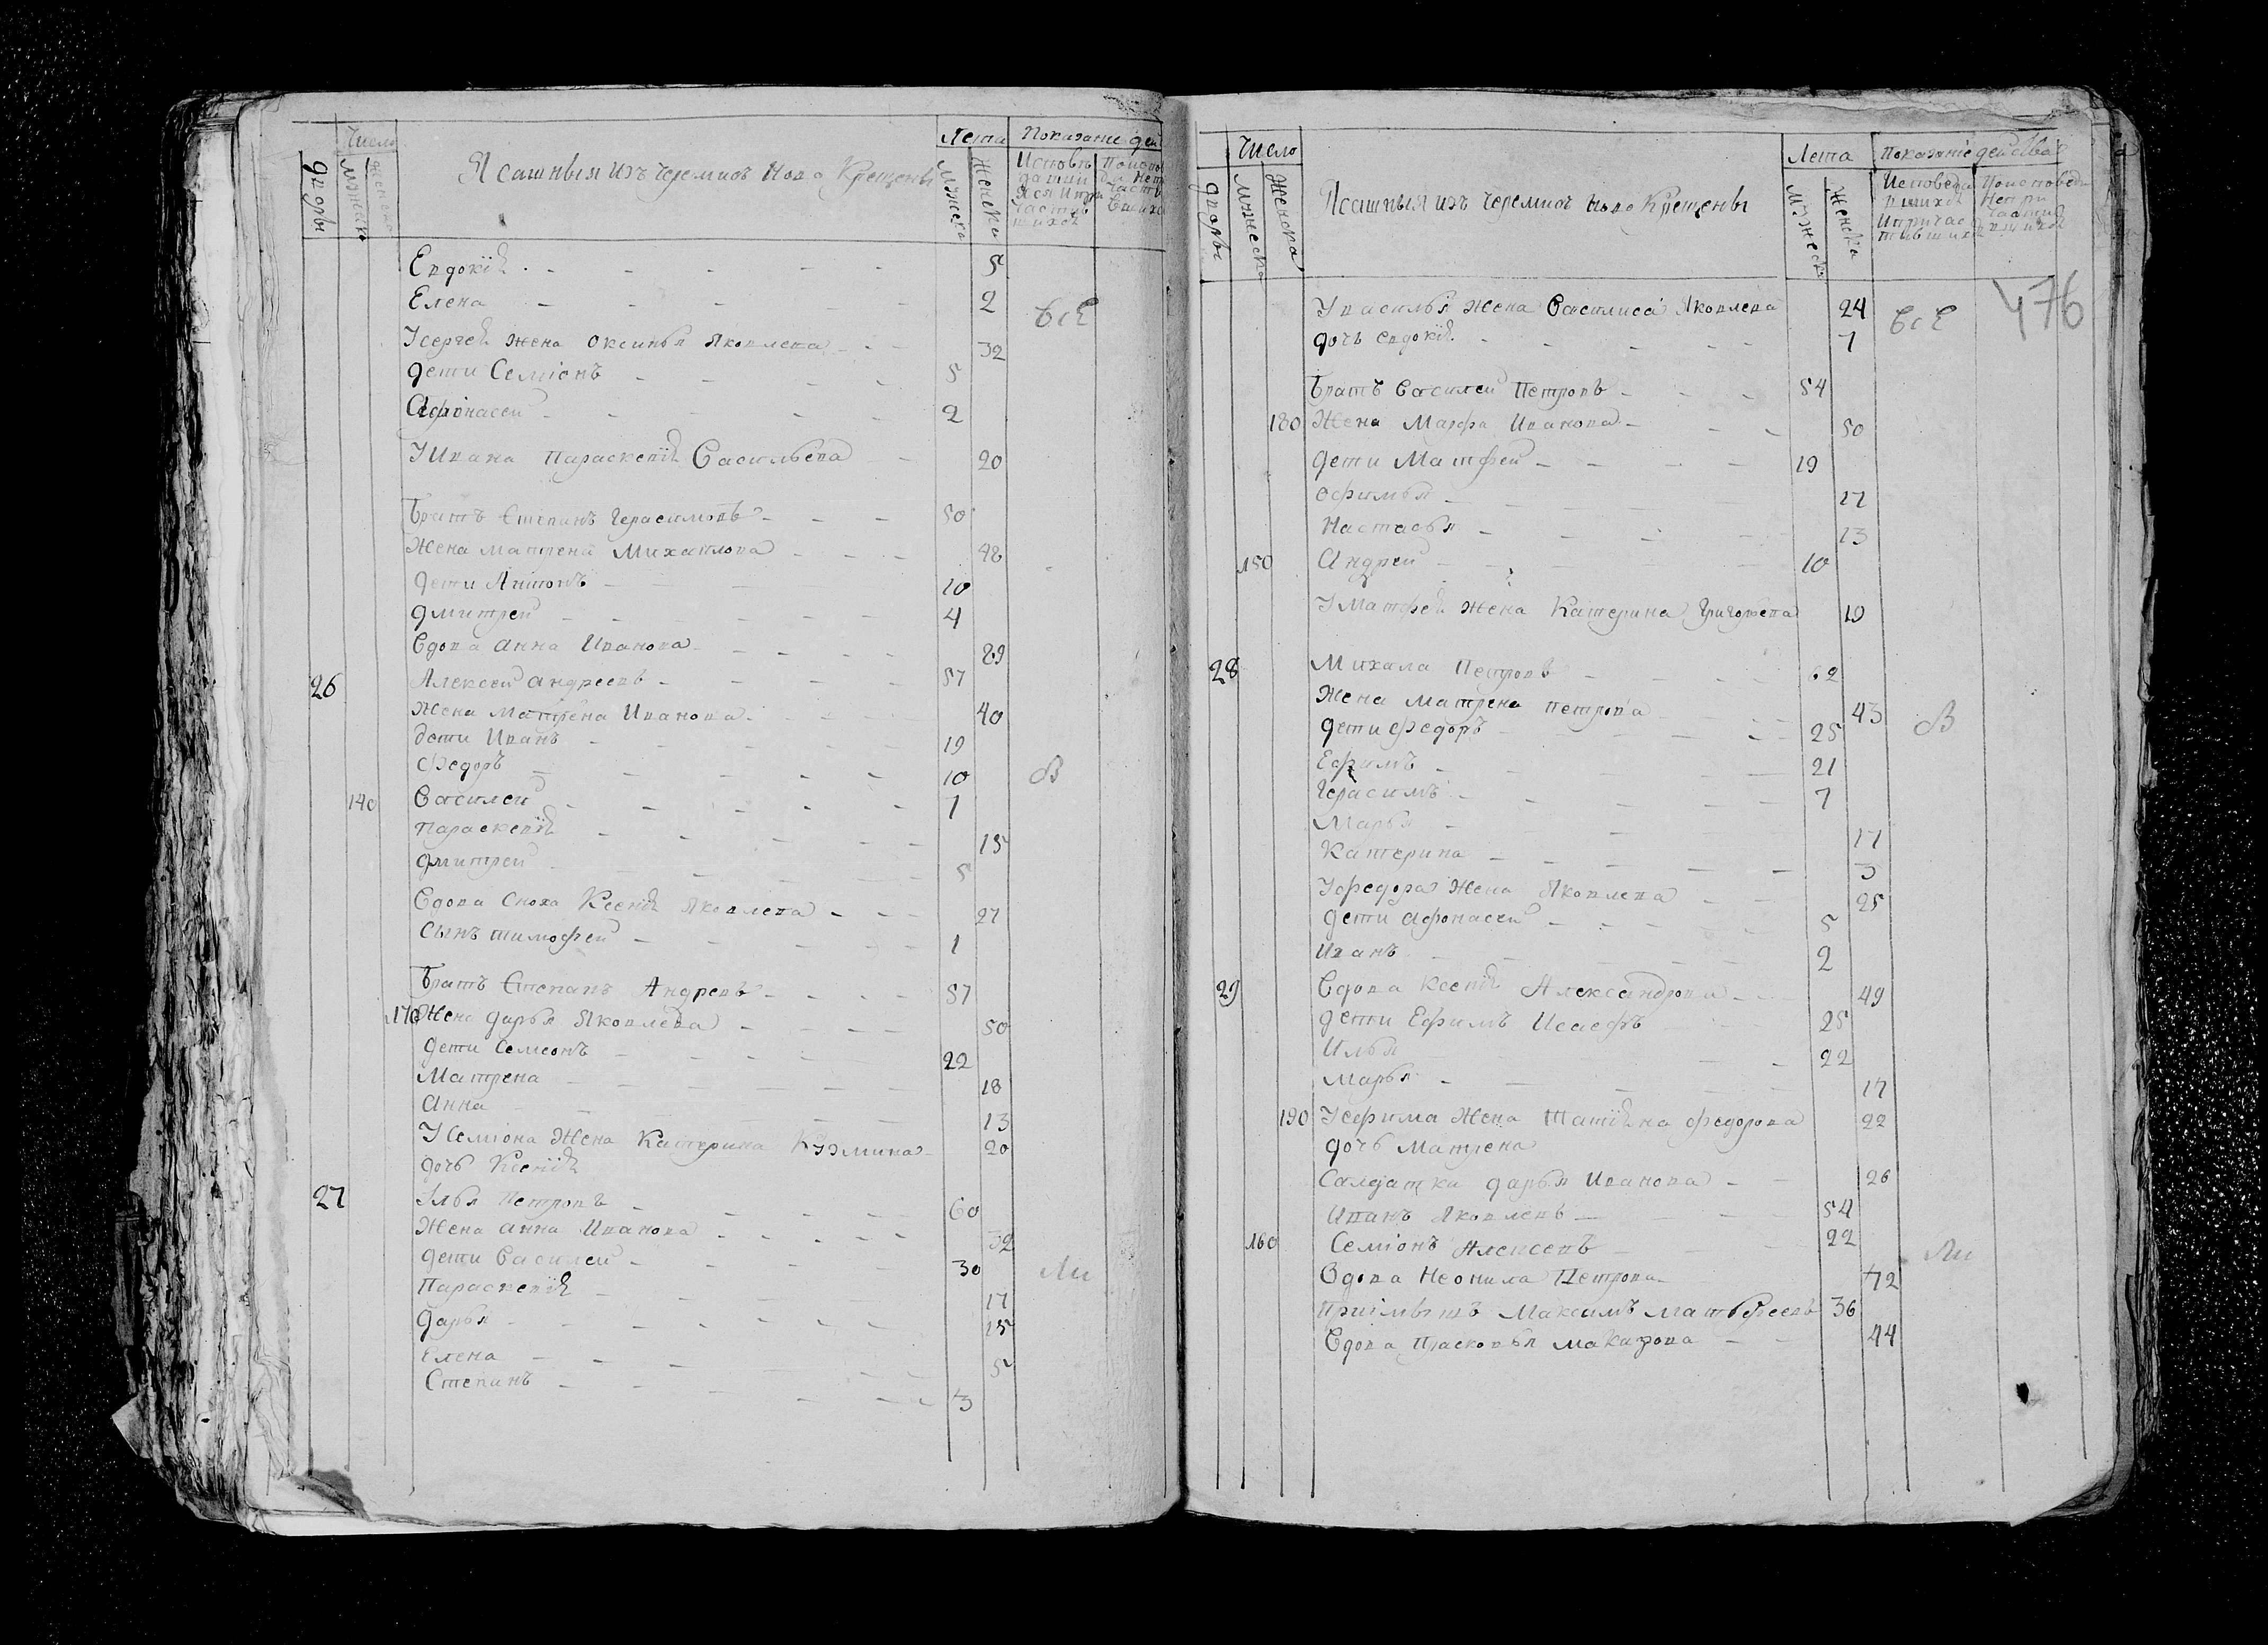 Число
Лета
Показание дей
дворы
мужеска
женска
Ясашныя изъ черемисъ Ново Крещены
мужеска
женски
Евдокия 5
Елена 2
все
У Сергея жена Оксинья Яковлева 32
дети Семіонъ 5
Афонасей 2
У Ивана Параскевия Васильева 20
братъ Степанъ Герасимовъ 50
жена матрена Михаилова 48
дети Антонъ 10
дмитрей 4
вдова анна Иванова 29
26 Алексей андреевъ 57
жена матрена Иванова 40
дети Иванъ 19
Федоръ 10
В
140 Василей 7
параскевия 15
дмитрей 5
вдова сноха Ксения Яковлева 27
сынъ тимофей 1
братъ Степанъ Андревъ 57
170 жена дарья Яковлева 50
дети семионъ 22
Матрена 18
анна 13
У Семіона жена Катерина Кузмина 20
дочь Ксения
27 Илья петровъ 60
жена анна Иванова 32
дети Василей 30
Ли
Параскевия 17
дарья 15
Елена 5
Степанъ 3
Число
Лета
Показаніе действа
дворы
мужеска
женска
Ясашныя изъ черемисъ ново Крещены
мужеск
женска
476
У василья жена Василиса Яковлева 24
все
дочь евдокия 7
братъ василей Петровъ 54
180 жена Марфа Иванова 50
дети Матфей 19
офимья 17
Настасья 13
150 Андрей 10
У Матфея жена Катерина Григорьева 19
28 Михала Петровъ 62
жена матрена петрова 43
В
дети федоръ 25
Ефимъ 21
Герасимъ 7
Марья 17
Катерина 3
У федора жена Яковлева 25
дети афонасей 5
Иванъ 2
29 Вдова ксения Александрова 49
дети Ефимъ Исаефъ 25
Илья 22
марья 17
190 У ефима жена Татияна федорова 22
дочь матрена
Салдатка дарья Иванова 26
Иванъ Яковлевъ 54
160 Семіонъ Алексевъ 22
Ли
Вдова Неонила Петрова 72
приімышъ Максимъ Матвеевъ 36
Вдова Прасковья макарова 44